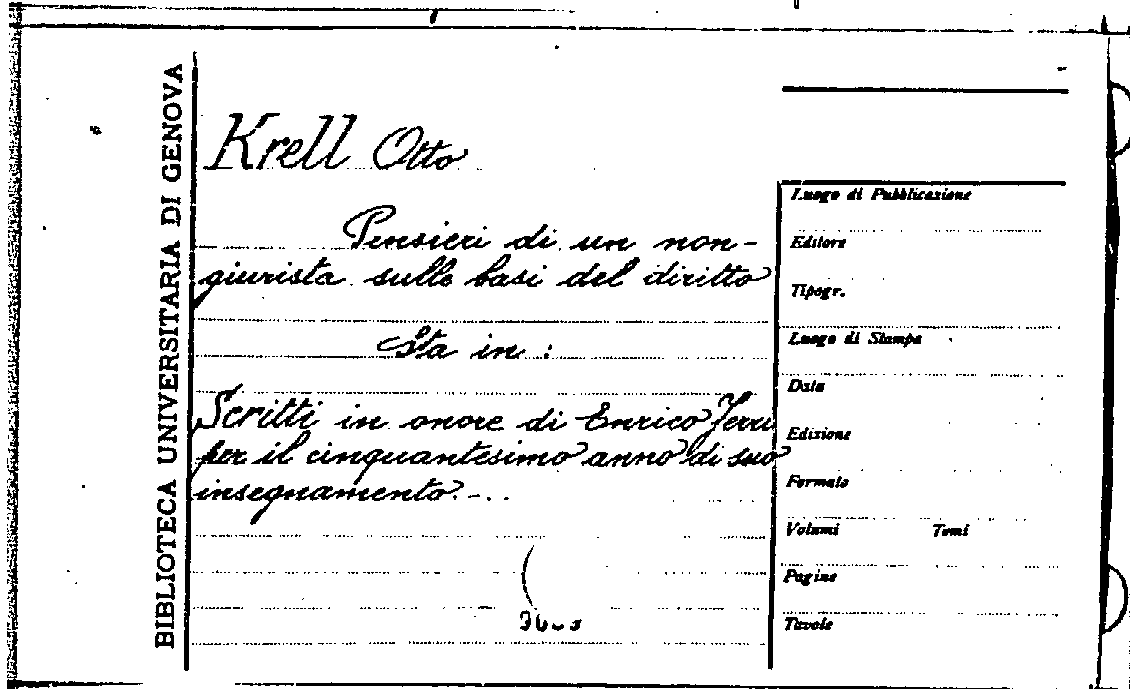 BIBLIOTECA UNIVERSITARIA DI GENOVA
Krell Otto
Pensieri di un non-
giurista sulle basi del diritto
Sta in :
Scritti in onore di Enrico Ferri
per il cinquantesimo anno di suo
insegnamento. - . .
Luogo di Pubblicazione
Editore
Tipogr.
Luogo di Stampa
Data
Edizione
Formato
Volumi Tomi
Pagine
Tavole